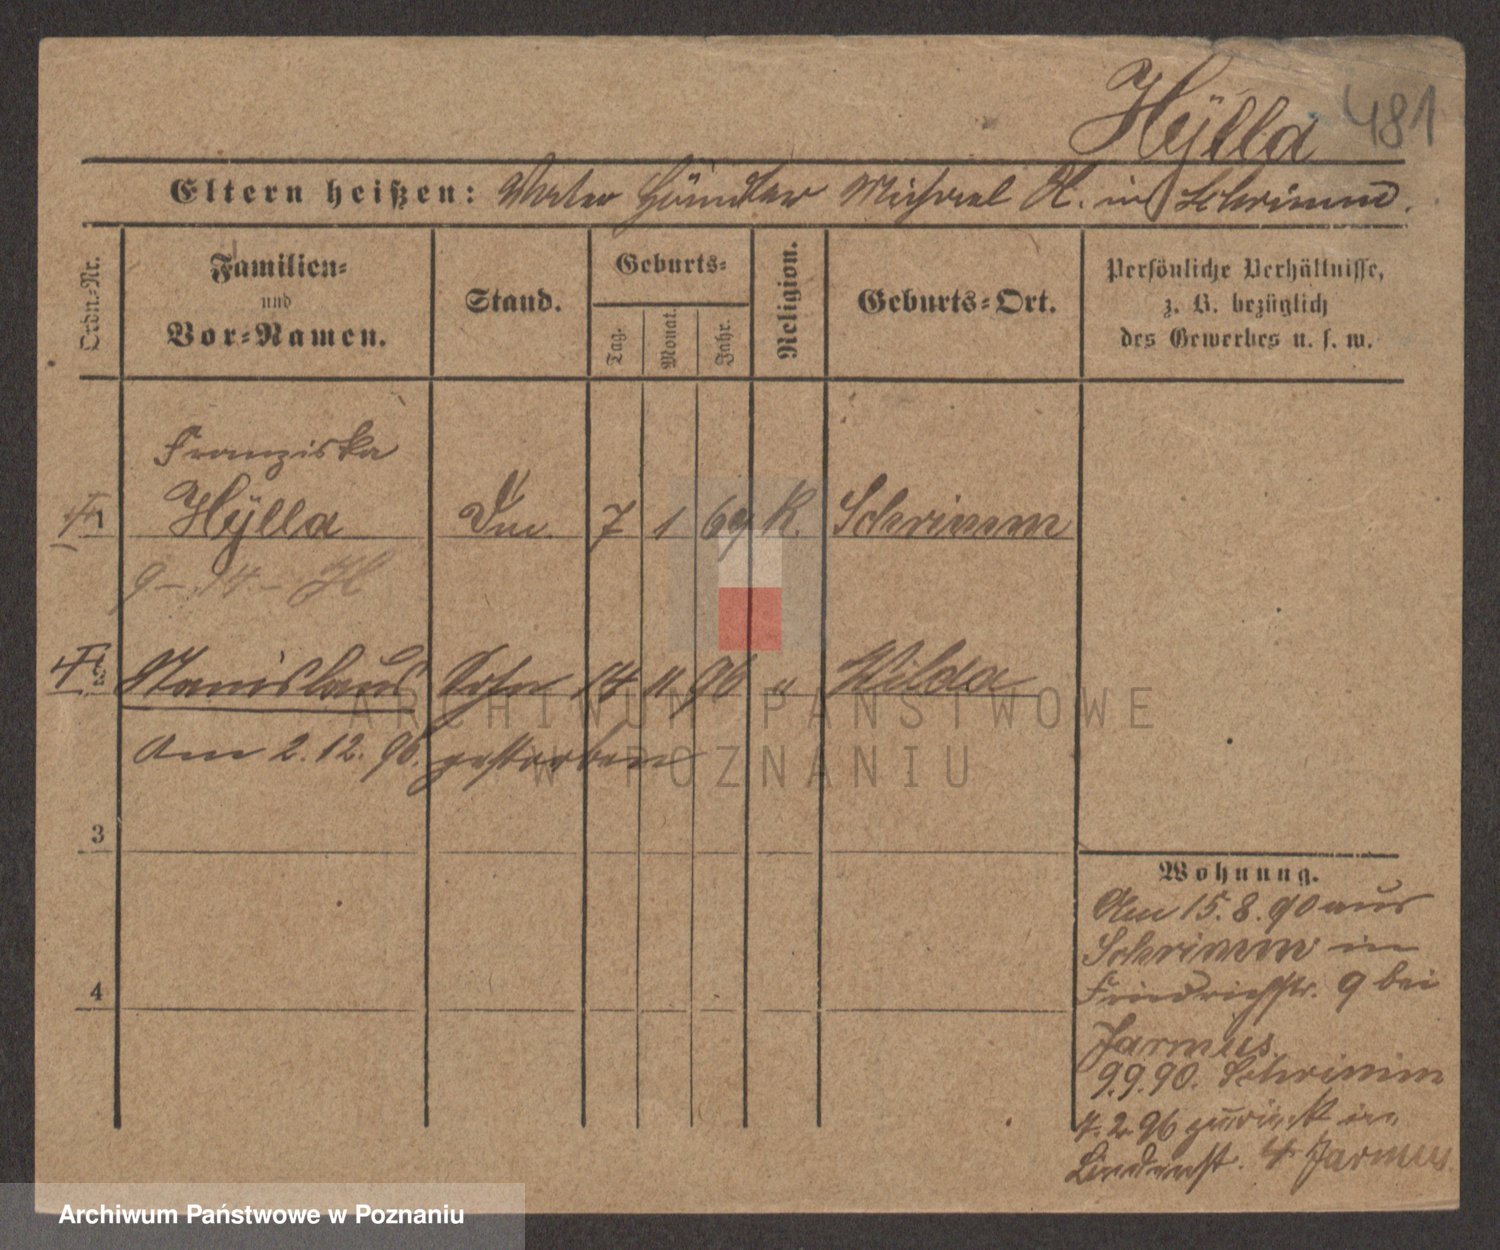 Hÿlla 481
Eltern heißen: Vater Händler Michael H. in Schrimm.
Ordn.-Nr.
Familien-
und
Vor-Namen.
Stand.
Geburts-
Tag.
Monat.
Jahr.
Religion.
Geburts-Ort.
Persönliche Verhältnisse,
z. B. bezüglich
des Gewerbes u. s. w.
Franziska
1 Hÿlla 7 1 69 K. Schrimm
9-14-H
2 Stanislaus Sohn 14 11 96 " Wilda
Am 2.12.96. gestorben
3
4
Wohnung.
Am 15.8.90 aus
Schrimm in
Friedrichstr. 9 bei
Jarmus
9.9.90. Schrimm
4.2.96 zurück in
Lindenst. 4 Jarmus
ARCHIWUM PAŃSTWOWE
W POZNANIU
Archiwum Państwowe w Poznaniu